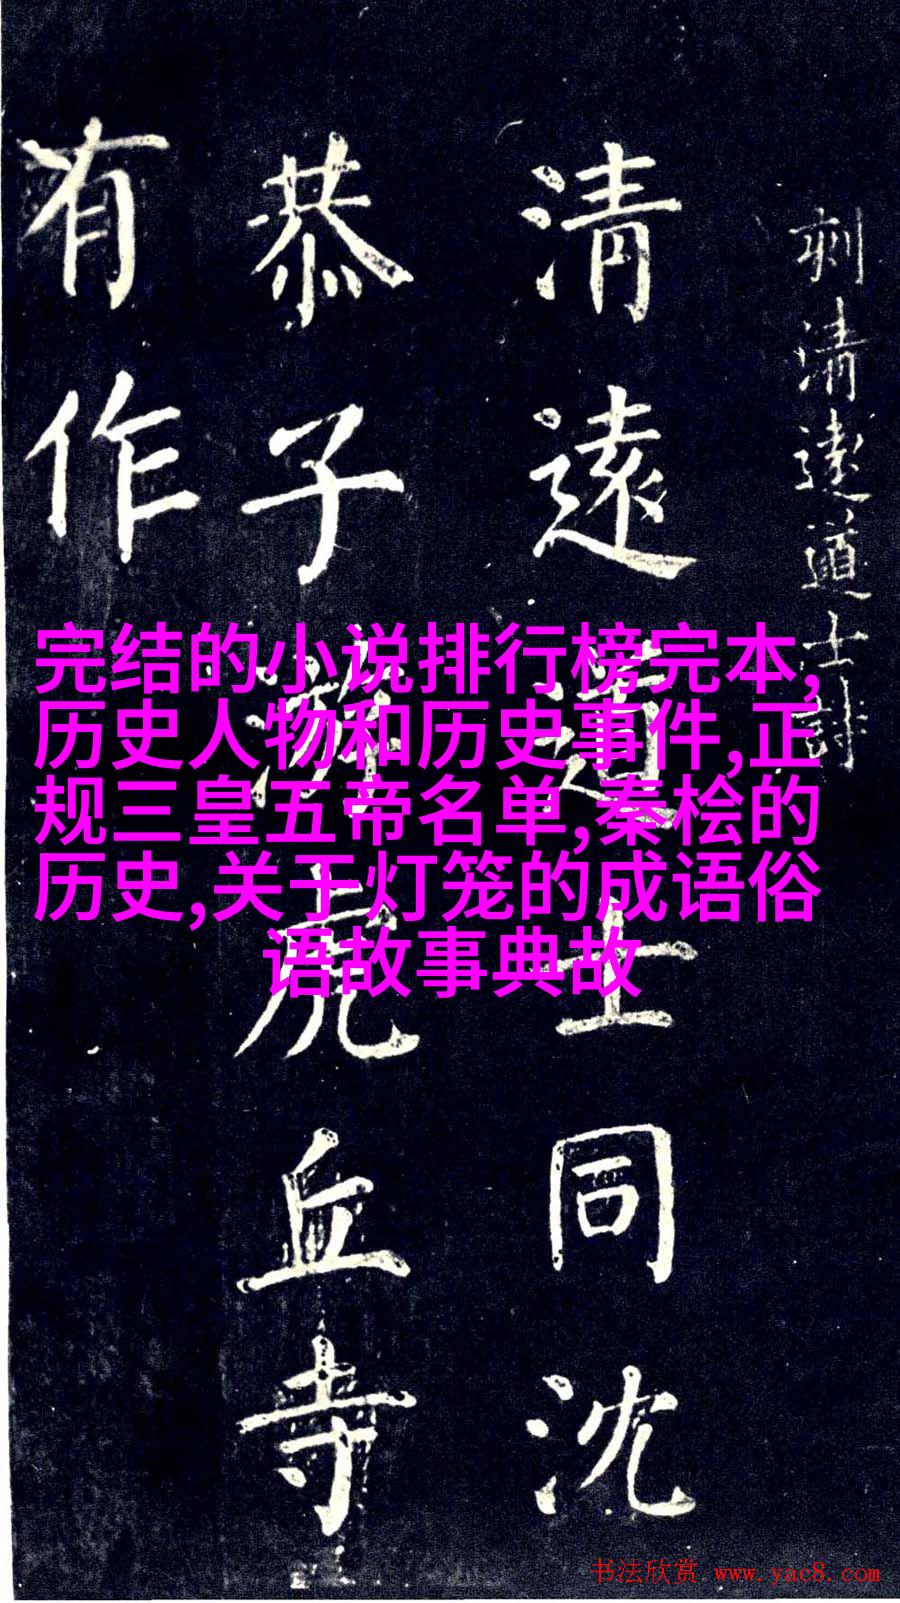 刻清遠道士詩
清遠道士同沈
恭子遊虎丘寺
有作
完结的小说排行榜完本,
历史人物和历史事件,正
规三皇五帝名单,秦桧的
历史,关于灯笼的成语俗
语故事典故
书法欣赏 www.yac8.com